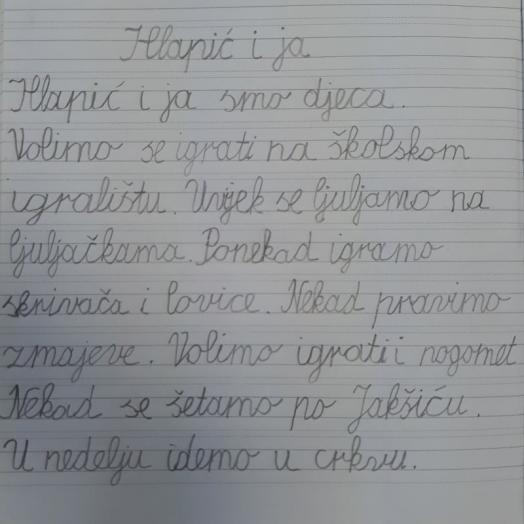 Hlapić i ja
Hlapić i ja smo djeca.
Volimo se igrati na školskom
igralištu. Uvijek se ljuljamo na
ljuljačkama. Ponekad igramo
skrivača i lovice. Nekad pravimo
zmajeve. Volimo igrati i nogomet
Nekad se šetamo po Jakšiću.
U nedelju idemo u crkvu.